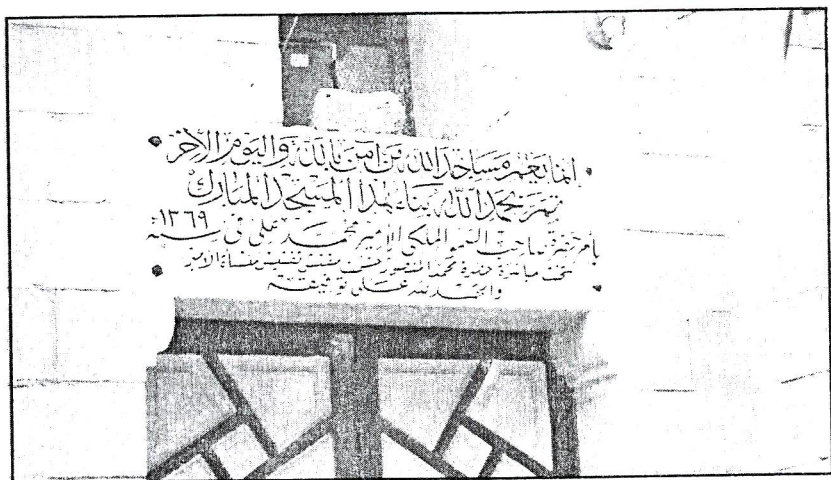 إنما يعمر مساجد الله من آمن بالله واليوم الآخر
تم بحمد الله بناء هذا المسجد المبارك
بأمر حضرة صاحب السمو الملكي الأمير محمد علي في سنة ١٣٦٩
تحت مباشرة حضرة محمد منصور مفتش تفتيش الأمير
والحمد لله على توفيقه